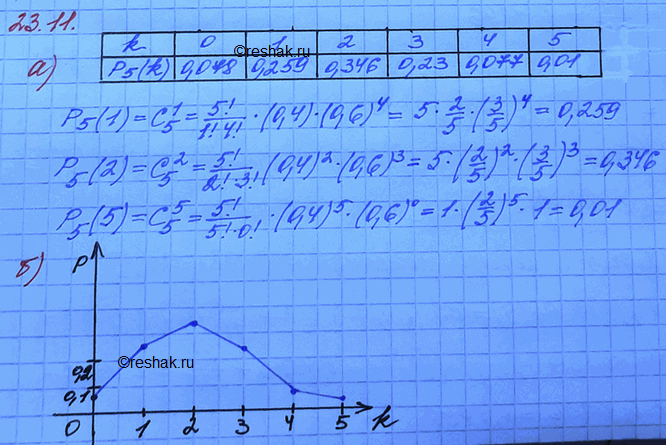 23.11.
k 0 1 2 3 4 5
а) P₅(k) 0,078 0,259 0,346 0,23 0,077 0,01
©reshak.ru
P₅(1) = C₅¹ = 5!/(1!·4!) · (0,4) · (0,6)⁴ = 5 · 2/5 · (3/5)⁴ = 0,259
P₅(2) = C₅² = 5!/(2!·3!) · (0,4)² · (0,6)³ = 5 · (2/5)² · (3/5)³ = 0,346
P₅(5) = C₅⁵ = 5!/(5!·0!) · (0,4)⁵ · (0,6)⁰ = 1 · (2/5)⁵ · 1 = 0,01
б) P
©reshak.ru
0,2
0,1
0 1 2 3 4 5 k